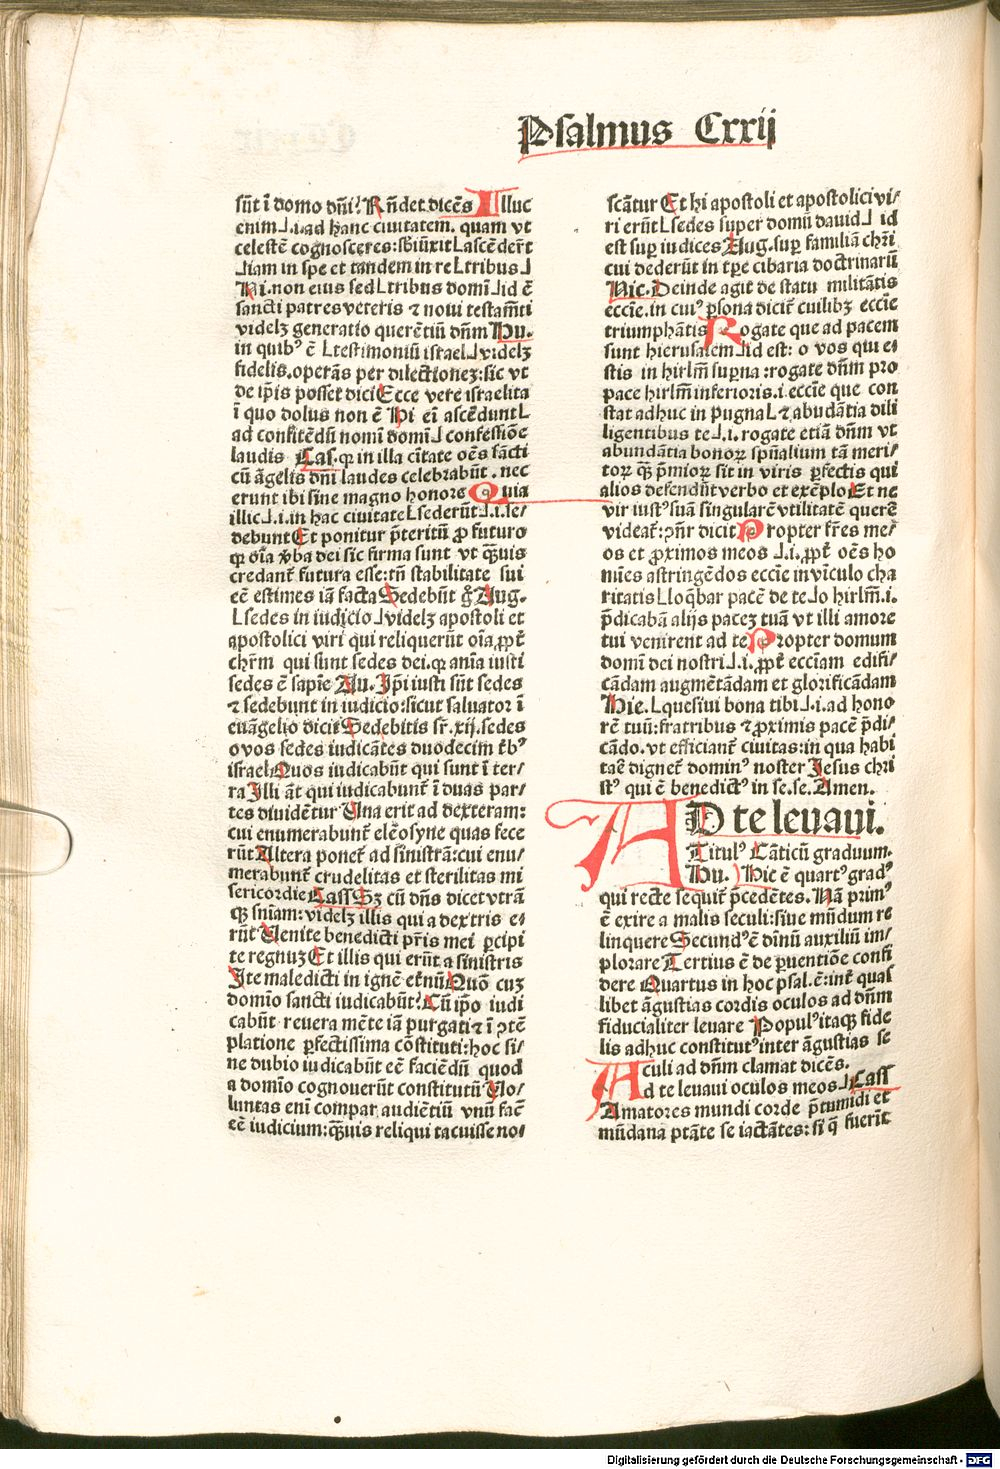 Psalmus Cxxij
sūt ī domo dñi? Rñdet dicēs Illuc
enim .i. ad hanc ciuitatem. quam vt
celestē cognosceres: sbiūxit ascēder̄t
iam in spe et tandem in re tribus
Ni. non eius sed tribus domī id ē
sancti patres veteris ⁊ noui testam̄ti
videlꝫ generatio querētiū dñm Hu.
in quibꝰ ē testimoniū israel videlꝫ
fidelis. operās per dilectionez: sic vt
de ip̄is posset dici Ecce vere israelita
ī quo dolus non ē Hi eī ascēdunt
ad confitēdū nomī domī confessiōe
laudis Cas. qꝛ in illa cītate oēs sācti
cū āgelis dñi laudes celebrabūt. nec
erunt ibi sine magno honore Quia
illic .i. in hac ciuitate sederūt .i. se/
debunt Et ponitur p̄teritū ꝓ futuro
qꝛ oīa v̄ba dei sic firma sunt vt qͣuis
credant̄ futura esse: tñ stabilitate sui
eē estimes iā facta Sedebūt ḡ Aug.
sedes in iudicio videlꝫ apostoli et
apostolici viri qui reliquerūt oīa ꝓpt̄
chr̄m qui sunt sedes dei. qꝛ anīa iusti
sedes ē sapīe Au. Ip̄i iusti sūt sedes
⁊ sedebunt in iudicio: sicut saluator ī
euāgelio dicit Sedebitis sr̄. xij. sedes
o vos sedes iudicātes duodecim t̄bꝰ
israel Quos iudicabūt qui sunt ī ter/
ra Illi āt qui iudicabunt̄ ī duas par/
tes diuidētur Una erit ad dexteram:
cui enumerabunt̄ elēosyne quas fece
rūt Altera ponet̄ ad sinistrā: cui enu/
merabunt̄ crudelitas et sterilitas mi
sericordie Cass Sꝫ cū dñs dicet vtrā
qꝫ sñiam: videlꝫ illis qui a dextris e/
rūt Uenite benedicti pr̄is mei ꝑcipi
te regnuꝫ Et illis qui erūt a sinistris
Ite maledicti in ignē et̄nū Quō cuꝫ
domīo sancti iudicabūt? Cū ip̄o iudi
cabūt reuera mēte iā purgati ⁊ ī ꝯtē
platione ꝑfectissima cōstituti: hoc si/
ne dubio iudicabūt eē faciēdū quod
a domīo cognouerūt constitutū Uo/
luntas enī compar audiētiū vnū fac̄
eē iudicium: qͣuis reliqui tacuisse no/
scātur Et hi apostoli et apostolici vi/
ri erūt sedes super domū dauid id
est suꝑ iudices Aug. suꝑ familiā chr̄i
cui dederūt in tꝑe cibaria doctrinarū
Nic. Deinde agit de statu militātis
eccīe. in cuiꝰ ꝑsona dicit̄ cuilibꝫ eccīe
triumphātis Rogate que ad pacem
sunt hierusalem id est: o vos qui e/
stis in hirlm̄ suꝑna: rogate dñm pro
pace hirlm̄ inferioris. i. eccīe que con
stat adhuc in pugna ⁊ abūdātia dili
ligentibus te .i. rogate etiā dñm vt
abundātia bonoꝝ spūalium tā meri/
toꝝ qͣ p̄mioꝝ sit in viris ꝑfectis qui
alios defendūt verbo et exēplo Et ne
vir iustꝰ suā singularē vtilitatē querē
videat̄: ꝯñr dicit Propter fr̄es me/
os et ꝓximos meos .i. ꝓpt̄ oēs ho
mīes astringēdos eccīe in vīculo cha
ritatis loq̄bar pacē de te o hirlm̄. i.
p̄dicabā alijs paceꝫ tuā vt illi amore
tui venirent ad te Propter domum
domī dei nostri .i. ꝓpt̄ eccīam edifi/
cādam augmētādam et glorificādam
Hie. quesiui bona tibi .i. ad hono
rē tuū: fratribus ⁊ ꝓximis pacē p̄di/
cādo. vt efficiant̄ ciuitas: in qua habi
tare dignet̄ dominꝰ noster Jesus chri
stꝰ qui ē benedictꝰ in se. se. Amen.
AD te leuaui.
Titulꝰ Cāticū graduum.
Hu. Hic ē quartꝰ gradꝰ
qui recte sequit̄ p̄cedētes. Nā primꝰ
ē exire a malis seculi: siue mūdum re
linquere Secundꝰ ē diuinū auxiliū im/
plorare Tertius ē de ꝑuentiōe confi
dere Quartus in hoc psal. ē: int̄ quas
libet āgustias cordis oculos ad dñm
fiducialiter leuare Populꝰ itaqꝫ fide
lis adhuc constitutꝰ inter āgustias se
culi ad dñm clamat dicēs.
Ad te leuaui oculos meos Cass
Amatores mundi corde p̄tumidi et
mūdana ptāte se iactātes: si q̄ fuerīt
Digitalisierung gefördert durch die Deutsche Forschungsgemeinschaft - DFG